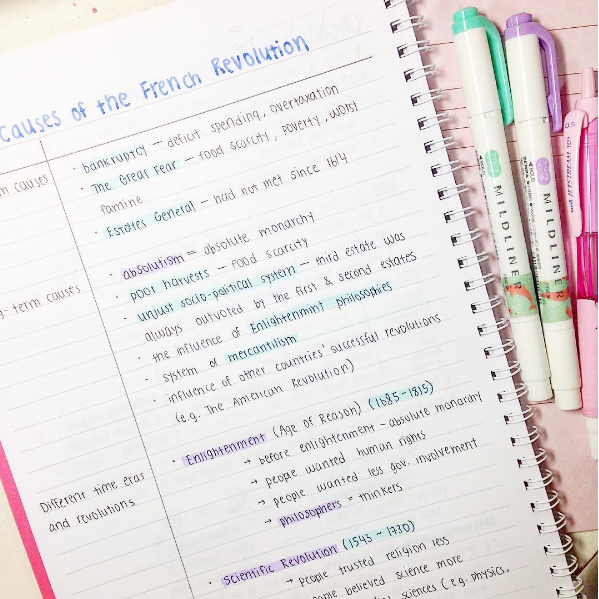 Causes of the French Revolution
m causes
• bankruptcy – deficit spending, overtaxation
• The Great Fear – food scarcity, poverty, worst
famine
• Estates General – had not met since 1614
g-term causes
• absolutism = absolute monarchy
• poor harvests – food scarcity
• unjust socio-political system – third estate was
always outvoted by the first & second estates
• the influence of Enlightenment philosophies
• system of mercantilism
• influence of other countries' successful revolutions
(e.g. The American Revolution)
Different time eras
and revolutions
• Enlightenment (Age of Reason) (1685-1815)
→ before enlightenment – absolute monarchy
→ people wanted human rights
→ people wanted less gov. involvement
→ philosophers = thinkers
• Scientific Revolution (1543 - 1730)
→ people trusted religion less
people believed science more
sciences (e.g. physics,
MILDLINE
MILDLINE
JETSTREAM